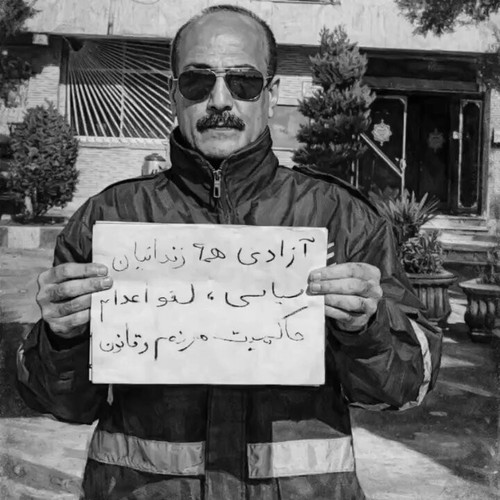 آزادی همه زندانیان
سیاسی، لغو اعدام
حاکمیت مردم و قانون